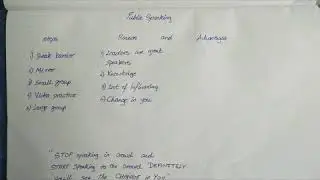 Public Speaking
steps
Reason and Advantages
1) Speak barrier
2) Mirror
3) Small group
4) Video practice
5) Large group
1) Leaders are great
speakers
2) Knowledge
3) lot of
4) Change in you
"STOP speaking in crowd and
START speaking to the crowd DEFINITELY
you'll see the CHANGE in You"